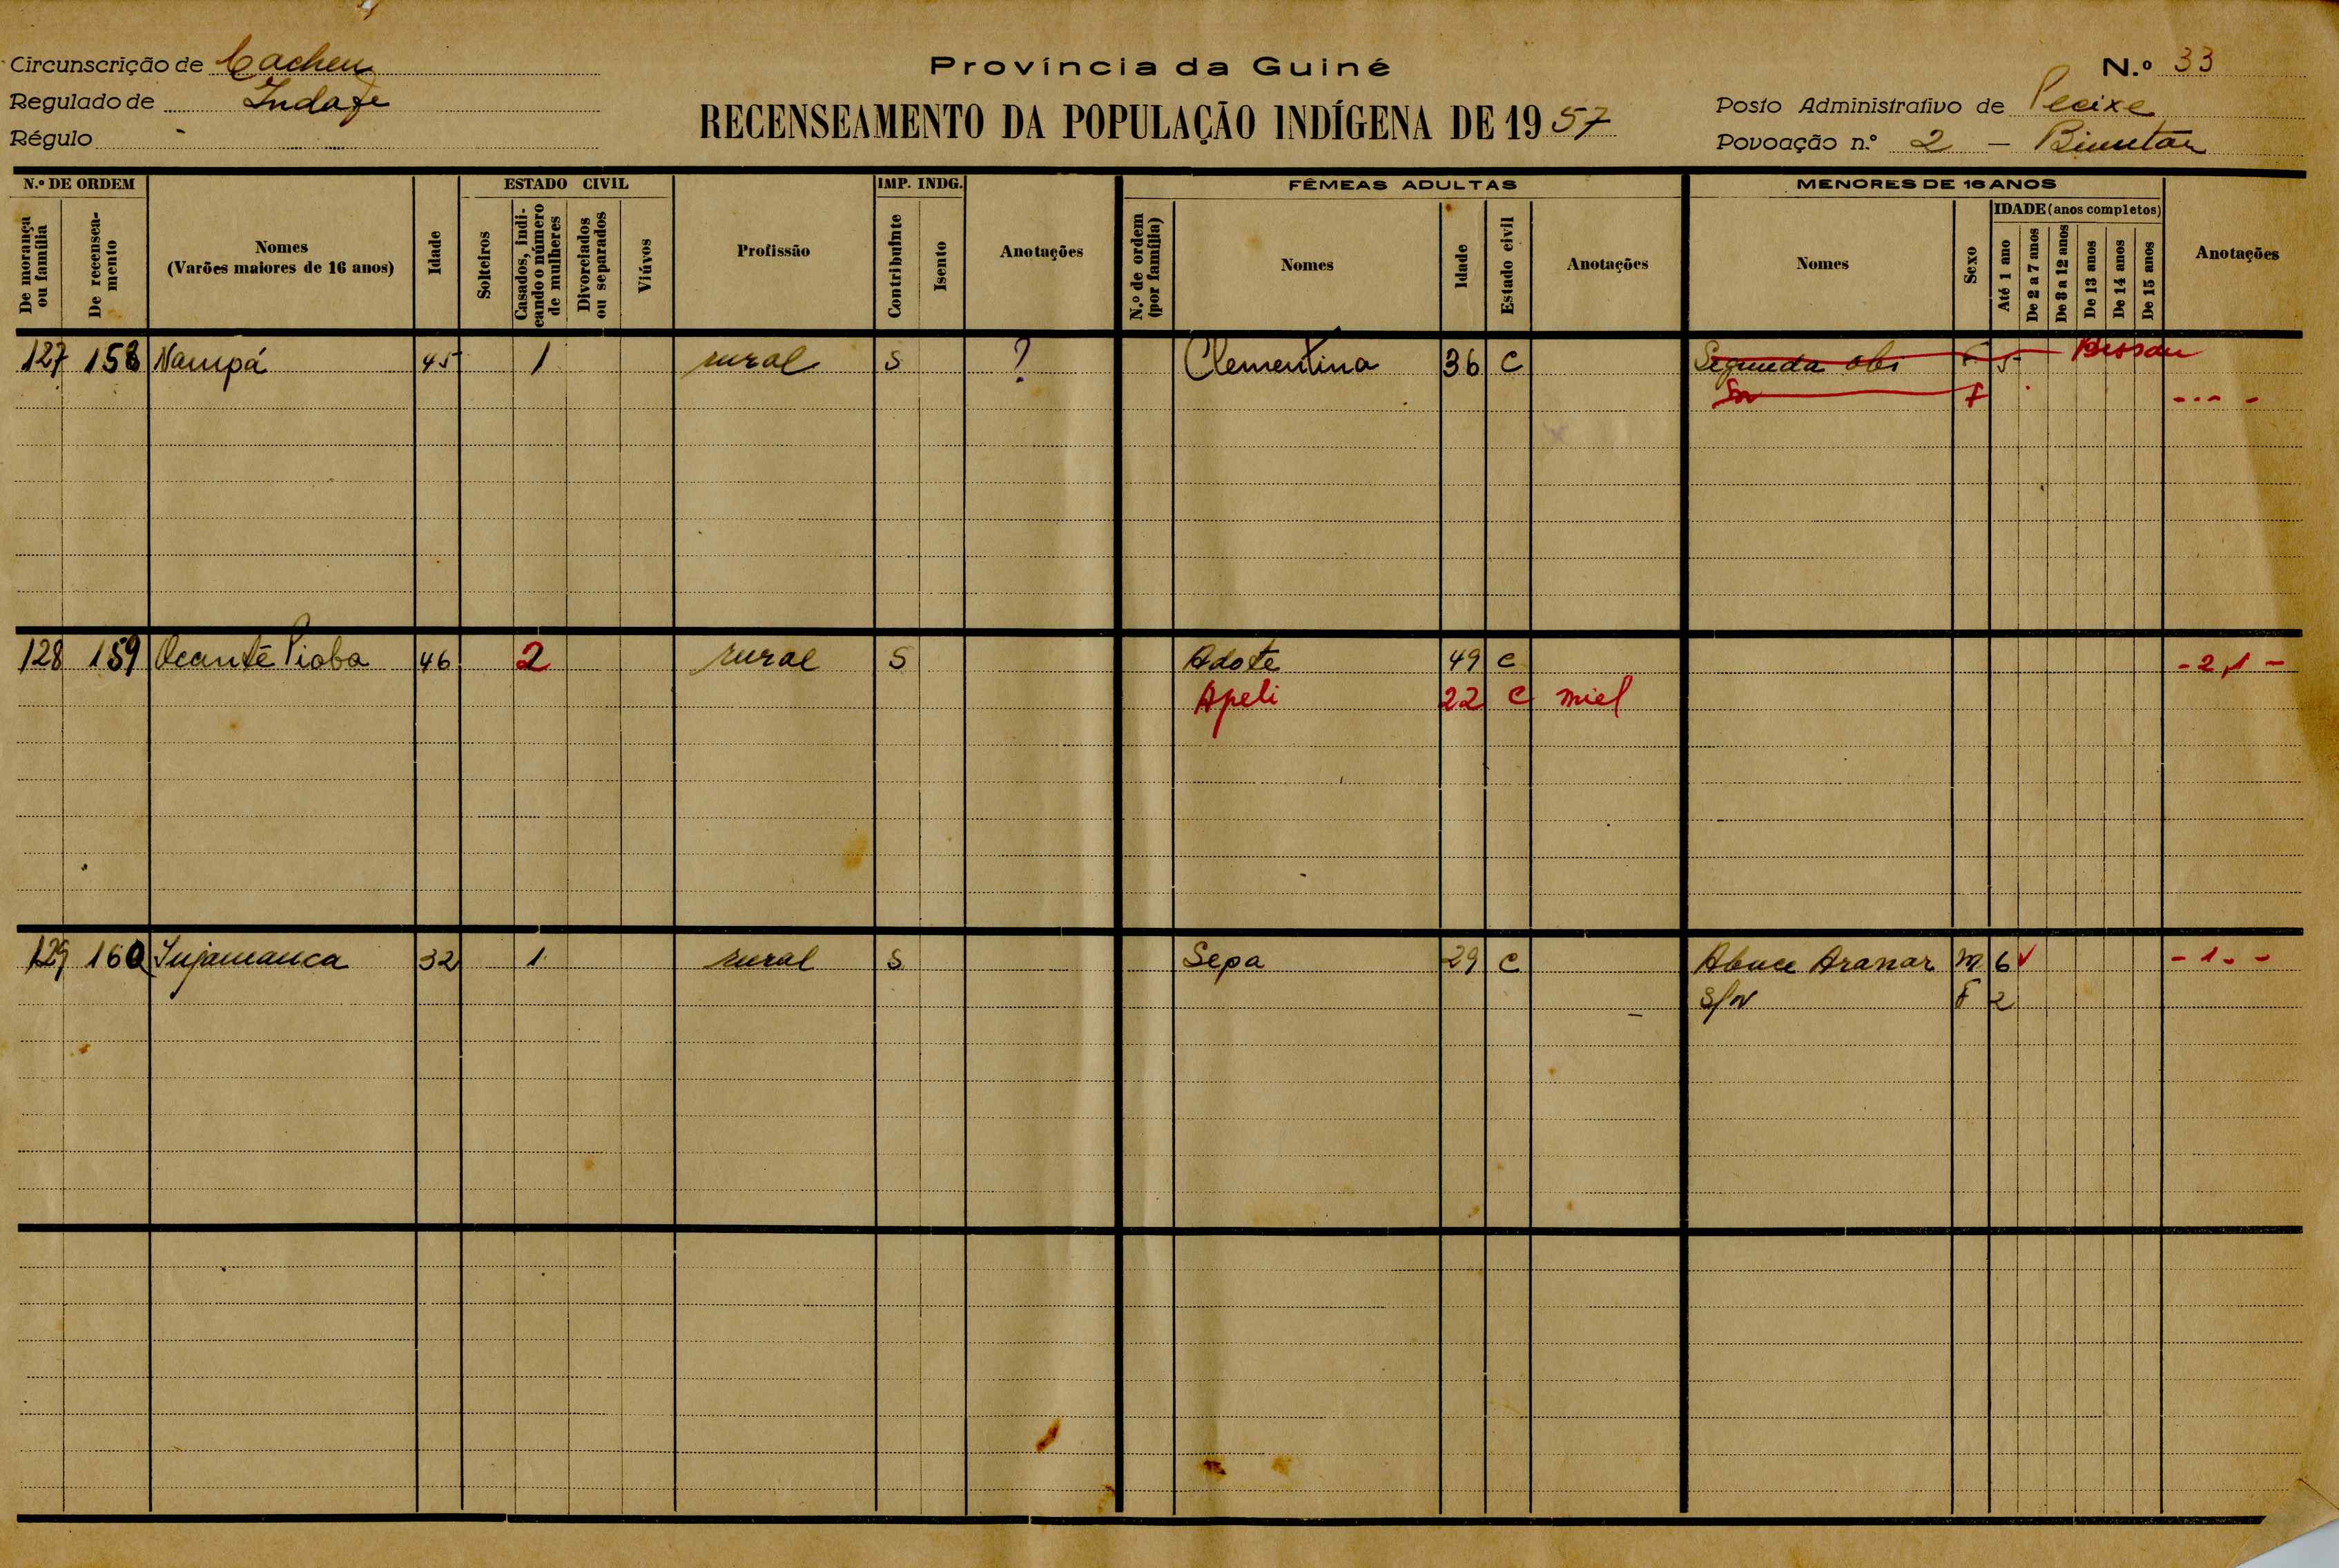 Circunscrição de Cacheu
Regulado de Indafe
Régulo -
Província da Guiné
RECENSEAMENTO DA POPULAÇÃO INDÍGENA DE 1957
N.º 33
Posto Administrativo de Pecixe
Povoação n.º 2 -
N.º DE ORDEM
De morança ou família
De recenseamento
Nomes
(Varões maiores de 16 anos)
Idade
ESTADO CIVIL
Solteiros
Casados, indicando o número de mulheres
Divorciados ou separados
Viúvos
Profissão
IMP. INDG.
Contribuinte
Isento
Anotações
FÊMEAS ADULTAS
N.º de ordem (por família)
Nomes
Idade
Estado civil
Anotações
MENORES DE 16 ANOS
Nomes
Sexo
IDADE (anos completos)
Até 1 ano
De 2 a 7 anos
De 8 a 12 anos
De 13 anos
De 14 anos
De 15 anos
Anotações
127 158 Nampá 45 1 rural S ? Clementina 36 C Segunda Obi F 5 Bissau
Sn F - - - -
128 159 Ocante Pioba 46 2 rural S Adote 49 C - 2, 1 -
Apeli 22 C miel
129 160 Jujamanca 32 1 rural S Sepa 29 C Abuce Aranar M 6 - 1 - -
S/N F 2